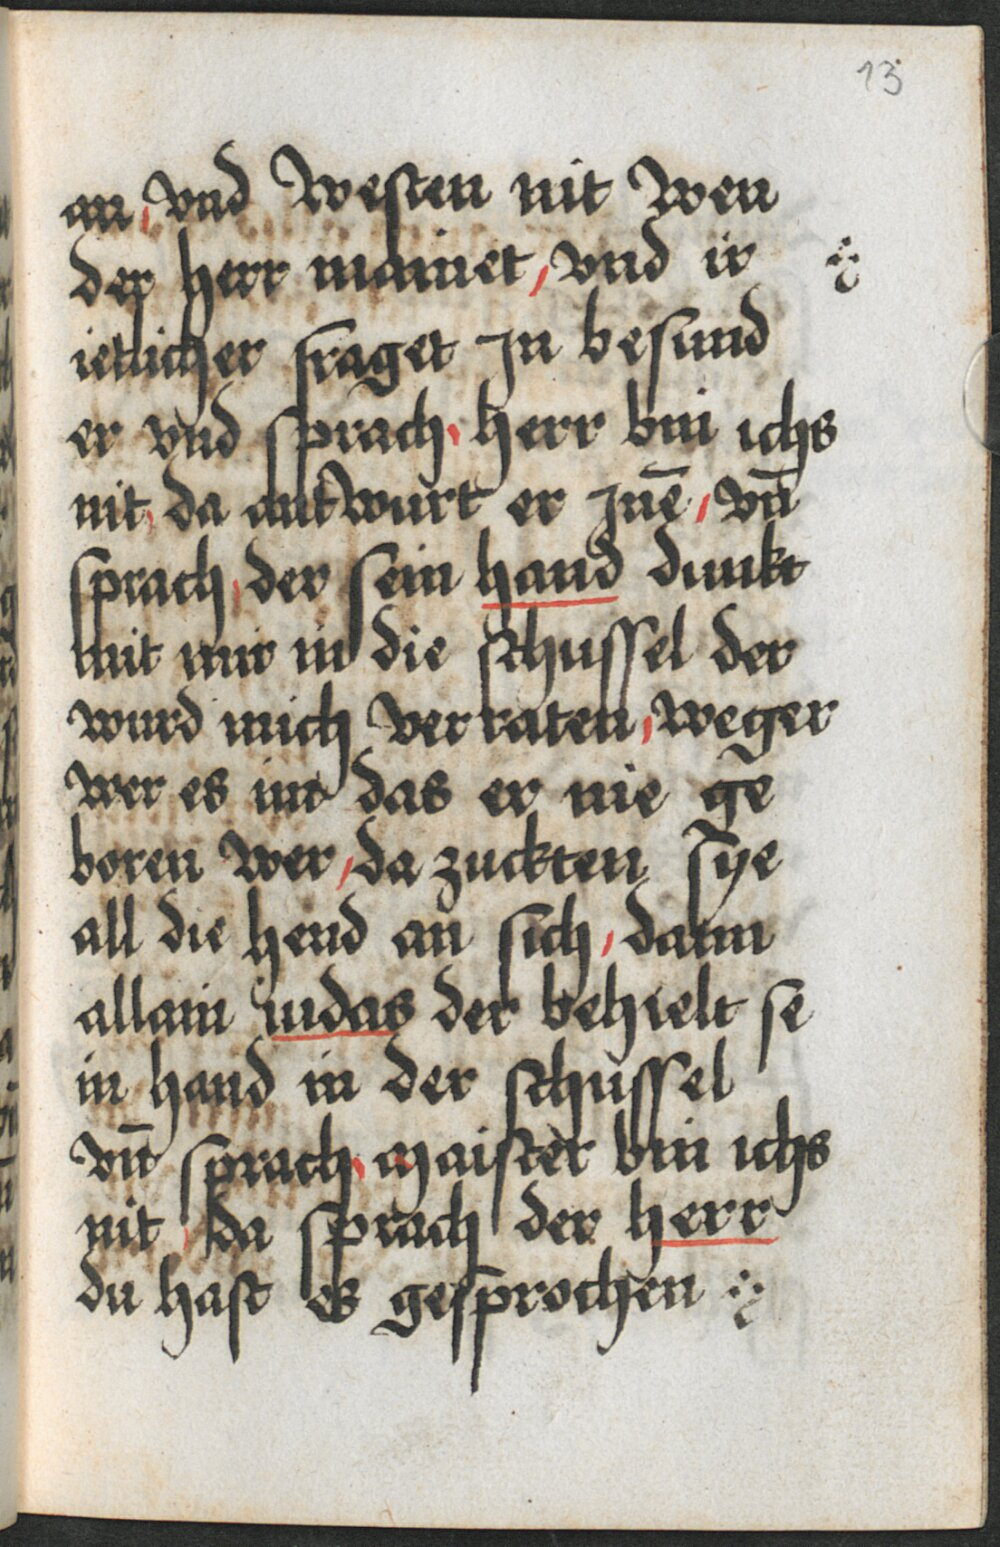 13
an, vnd westen nit wen
der herr mainet, vnd ir
ietlicher fraget jn besund
er vnd sprach, herr bin ichs
nit, da antwurt er jnē, vn̄
sprach, der sein hand dunkt
mit mir in die schussel der
wurd mich verraten, weger
wer es im das er nie ge
boren wer, da zuckten sye
all die hend an sich, dann
allain iudas der behielt se
in hand in der schussel
vn̄ sprach, maister bin ichs
nit, da sprach der herr
du hast es gesprochen